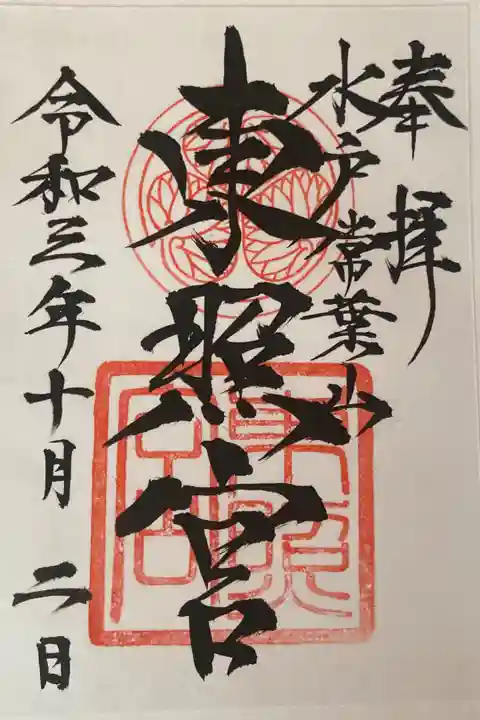 奉拝
水戸常葉山
東照宮
令和三年十月二日